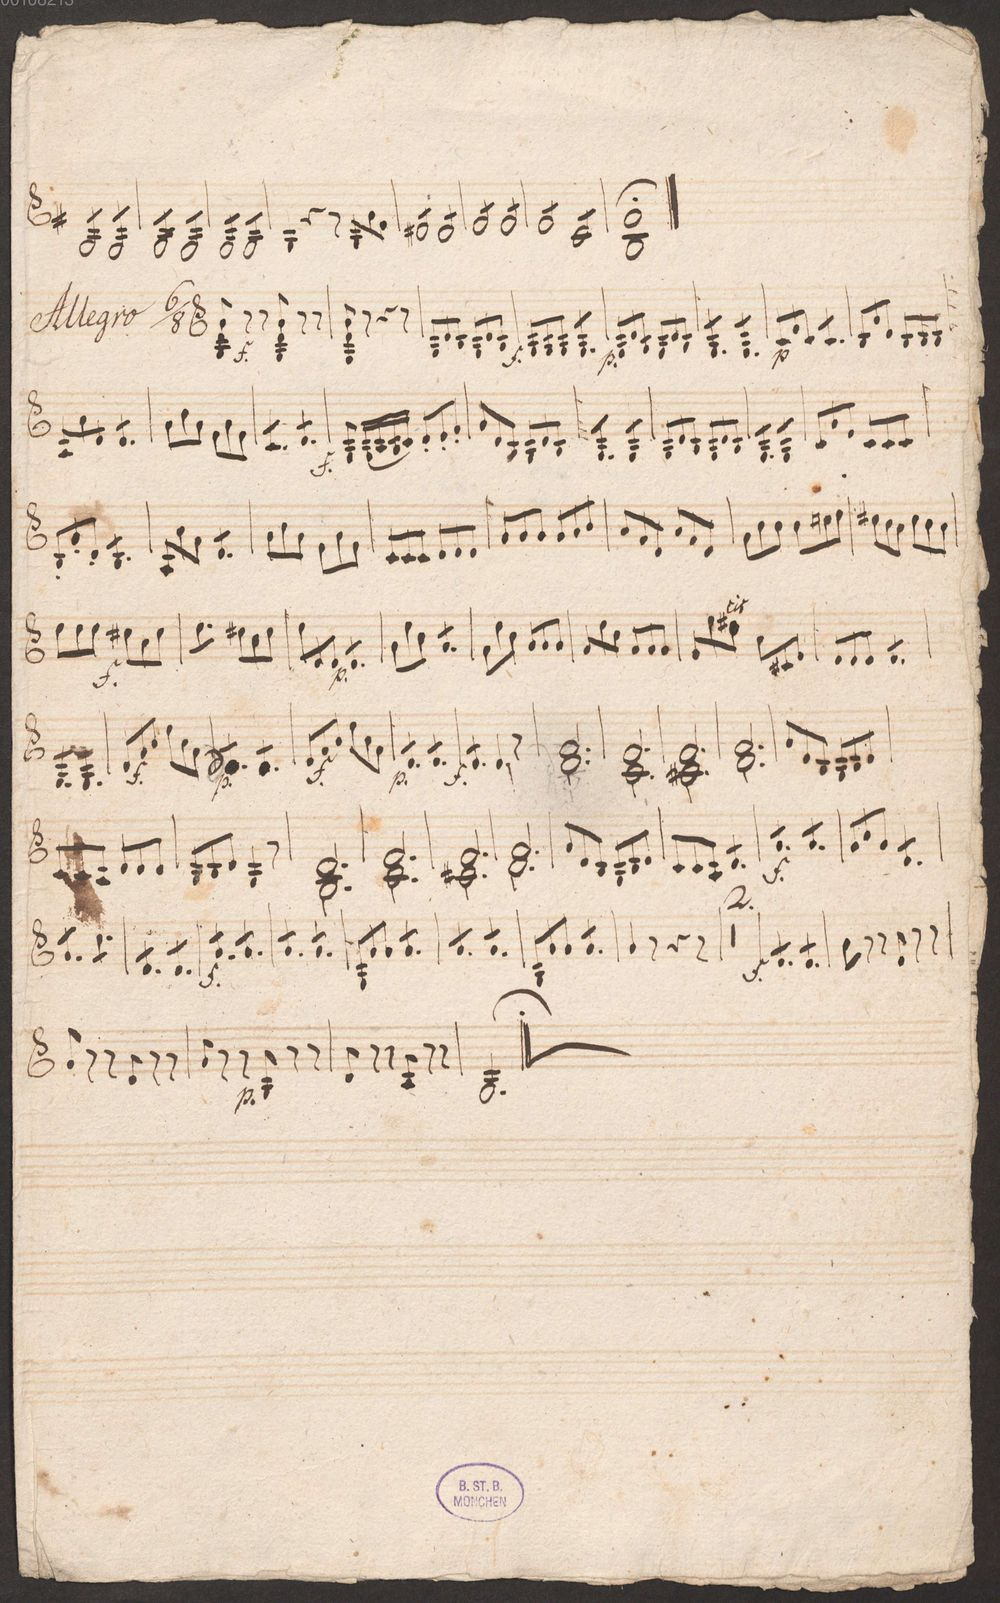 00108213
Allegro 6/8
f.
f. p. p
f.
f. p.
tr
f. p. f. p. f.
f.
2.
f. f.
p.
B. ST. B.
MÜNCHEN